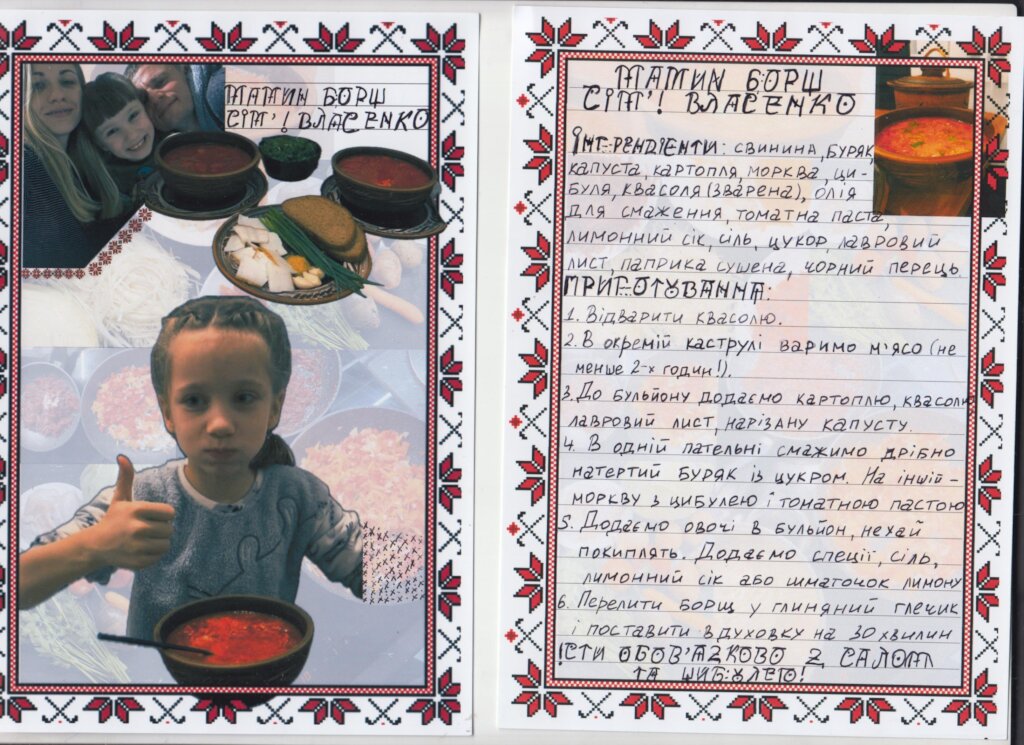 МАМИН БОРЩ
СІМ'Ї ВЛАСЕНКО
МАМИН БОРЩ
СІМ'Ї ВЛАСЕНКО
ІНГРЕДІЄНТИ: СВИНИНА, БУРЯК,
КАПУСТА, КАРТОПЛЯ, МОРКВА, ЦИ-
БУЛЯ, КВАСОЛЯ (ЗВАРЕНА), ОЛІЯ
ДЛЯ СМАЖЕННЯ, ТОМАТНА ПАСТА,
ЛИМОННИЙ СІК, СІЛЬ, ЦУКОР, ЛАВРОВИЙ
ЛИСТ, ПАПРИКА СУШЕНА, ЧОРНИЙ ПЕРЕЦЬ
ПРИГОТУВАННЯ:
1. Відварити квасолю.
2. В окремій каструлі варимо м'ясо (не
менше 2-х годин!).
3. До бульйону додаємо картоплю, квасолю
лавровий лист, нарізану капусту.
4. В одній пательні смажимо дрібно
натертий буряк із цукром. На іншій -
моркву з цибулею і томатною пастою
5. Додаємо овочі в бульйон, нехай
покиплять. Додаємо спеції, сіль,
лимонний сік або шматочок лимону
6. Перелити борщ у глиняний глечик
і поставити в духовку на 30 хвилин
ЇСТИ ОБОВ'ЯЗКОВО З САЛОМ
ТА ЦИБУЛЕЮ!